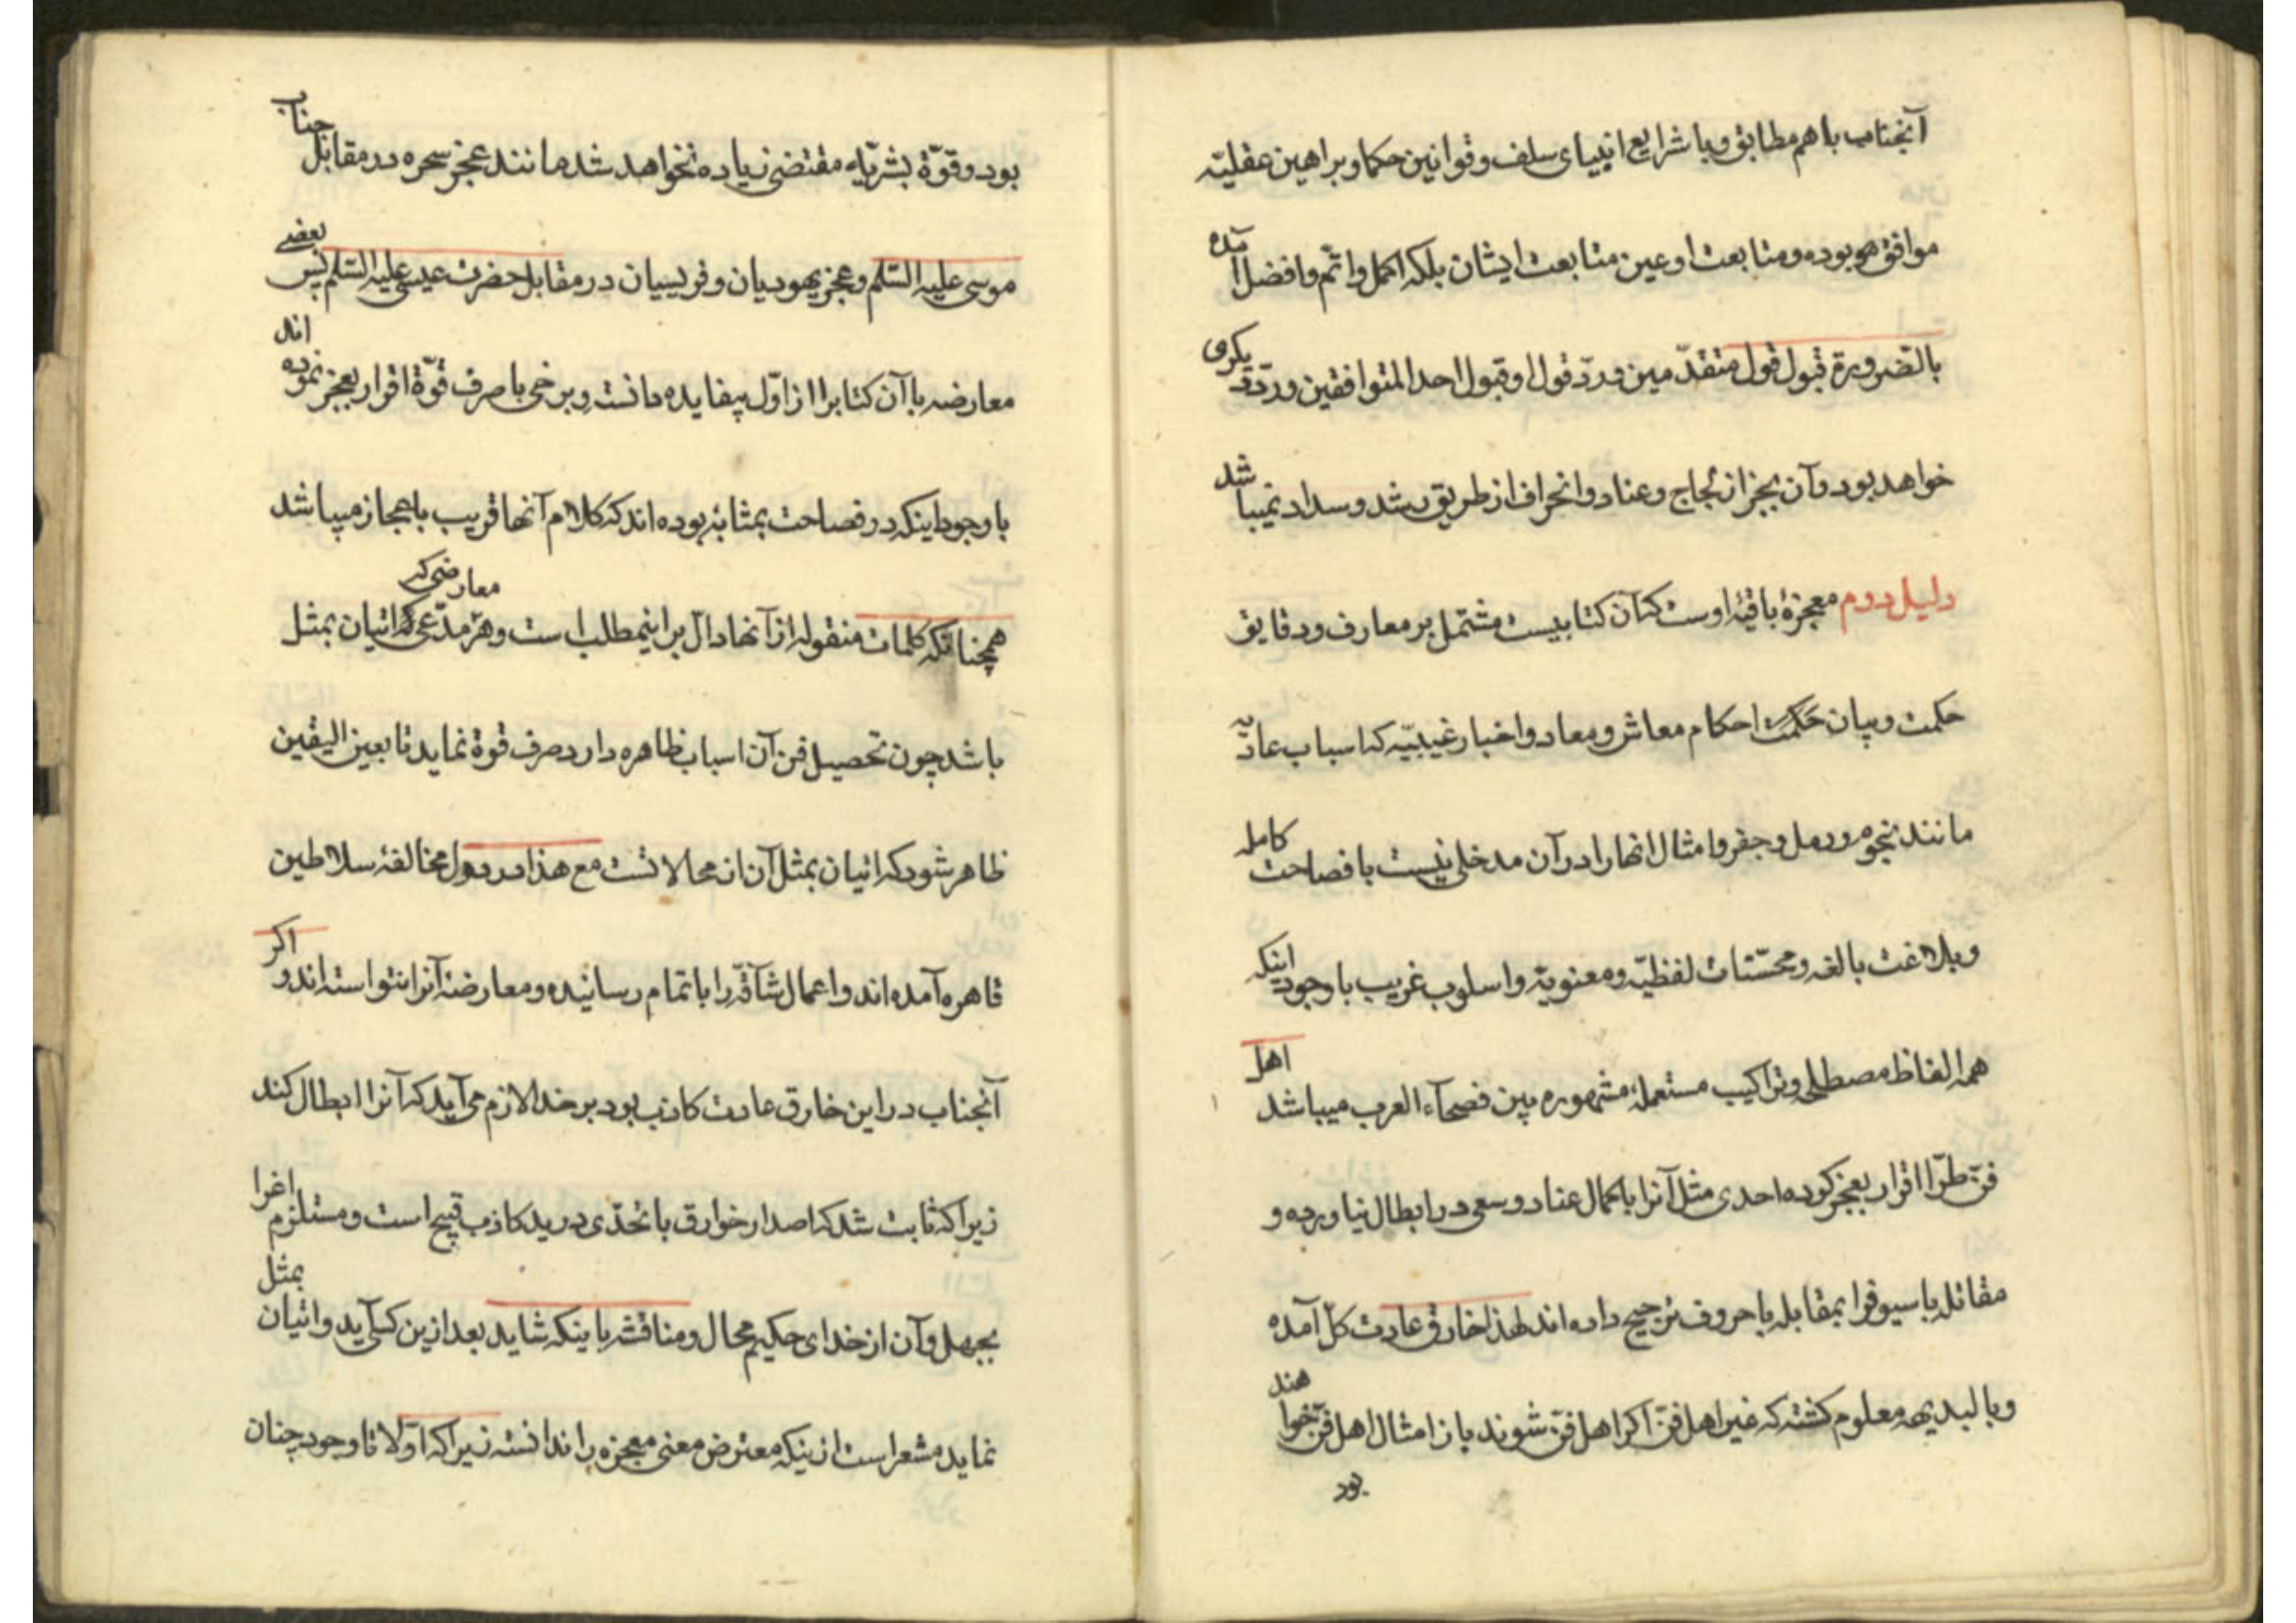 آنجناب باهم مطابق و با شرایع انبیای سلف و قوانین حکما و براهین عقلیّه
موافق هم بوده و متابعت او عین متابعت ایشان بلکه اکمل و اتم و افضل آمده
بالضرورة قبول قول متقدّمین و ردّ قول او قبول احد المتوافقین و ردّ دیکری
خواهد بود و آن بجز از لجاج و عناد و انحراف از طریق رشد و سداد نمیباشد
دلیل دوم معجزهٔ باقیهٔ اوست که آن کتابیست مشتمل بر معارف و دقایق
حکمت و بیان حکمت احکام معاش و معاد و اخبار غیبیّه که اسباب عادیّه
مانند نجوم و رمل و جفر و امثال انها را در آن مدخلی نیست با فصاحت کامله
و بلاغت بالغه و محسّنات لفظیّه و معنویّه و اسلوب غریب با وجود اینکه
همه الفاظ مصطلح و تراکیب مستعملهٔ مشهوره بین فصحآء العرب میباشد اهل
فن طرّا اقرار بعجز کرده احدی مثل آنرا با کمال عناد و سعی در ابطال نیاورده و
مقاتله با سیوف را بمقابله با حروف ترجیح داده اند لهذا خارق عادت کل آمده
و بالبدیهه معلوم کشته که غیر اهل فنّ اکر اهل فنّ شوند باز امثال اهل فنّ خواهند
بود
بود و قوّة بشریّه مقتضی زیاده نخواهد شد مانند عجز سحره در مقابل جناب
موسی علیه السّلم و عجز یهودیان و فریسیان در مقابل حضرت عیسی علیه السّلم پس بعضی
معارضه با آن کتابرا از اوّل بیفایده دانسته و برخی با صرف قوّة اقرار بعجز نموده اند
با وجود اینکه در فصاحت بمثابهٔ بوده اند که کلام آنها قریب باعجاز میباشد
همچنانکه کلمات منقوله از آنها دالّ بر اینمطلب است و هر مدّعی معارضی که اتیان بمثل
باشد چون تحصیل فن آن اسباب ظاهره دارد صرف قوة نماید تا بعین الیقین
ظاهر شود که اتیان بمثل آن از محالاتست مع هذا در دول مخالفهٔ سلاطین
قاهره آمده اند و اعمال شآقّه را باتمام رسانیده و معارضهٔ آنرا نتوانسته اند و اکر
آنجناب در این خارق عادت کاذب بود بر خدا لازم می آید که آنرا ابطال کند
زیرا که ثابت شد که اصدار خوارق با تحدّی در ید کاذب قبیح است و مستلزم اغرا
بجهل و آن از خدای حکیم محال و مناقشه باینکه شاید بعد ازین کسی آید و اتیان بمثل
نماید مشعر است ازینکه معترض معنی معجزه را ندانسته زیرا که اوّلا تا وجود چنان